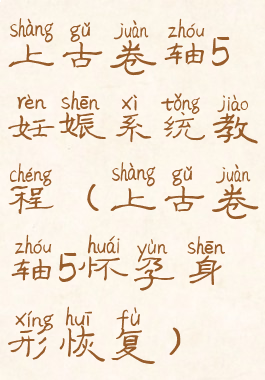 shàng gǔ juàn zhóu
上古卷轴5
rèn shēn xì tǒng jiào
妊娠系统教
chéng shàng gǔ juàn
程（上古卷
zhóu huái yùn shēn
轴5怀孕身
xíng huī fù
形恢复）